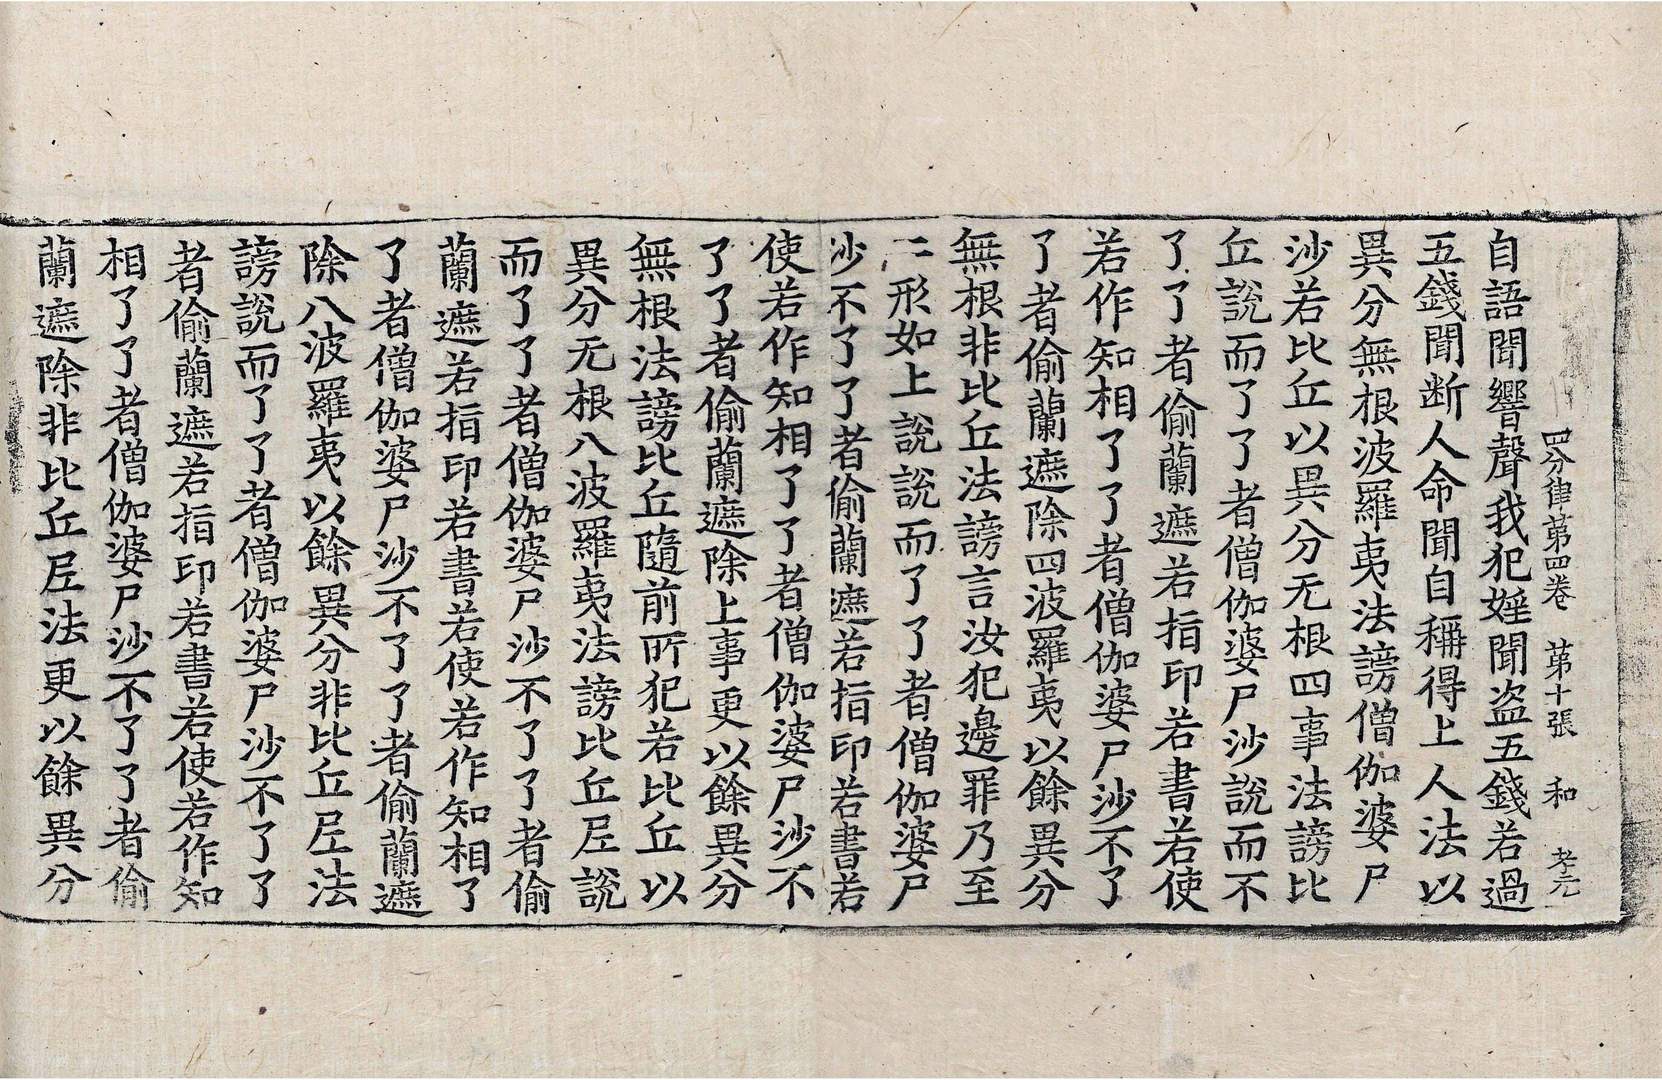 四分律第四卷 第十張 和 老元
自語聞響聲我犯婬聞盜五錢若過
五錢聞断人命聞自稱得上人法以
異分無根波羅夷法謗僧伽婆尸
沙若比丘以異分无根四事法謗比
丘說而了了者僧伽婆尸沙說而不
了了者偷蘭遮若指印若書若使
若作知相了了者僧伽婆尸沙不了
了者偷蘭遮除四波羅夷以餘異分
無根非比丘法謗言汝犯邊罪乃至
二形如上說說而了了者僧伽婆尸
沙不了了者偷蘭遮若指印若書若
使若作知相了了者僧伽婆尸沙不
了了者偷蘭遮除上事更以餘異分
無根法謗比丘隨前所犯若比丘以
異分无根八波羅夷法謗比丘尼說
而了了者僧伽婆尸沙不了了者偷
蘭遮若指印若書若使若作知相了
了者僧伽婆尸沙不了了者偷蘭遮
除八波羅夷以餘異分非比丘尼法
謗說而了了者僧伽婆尸沙不了了
者偷蘭遮若指印若書若使若作知
相了了者僧伽婆尸沙不了了者偷
蘭遮除非比丘尼法更以餘異分